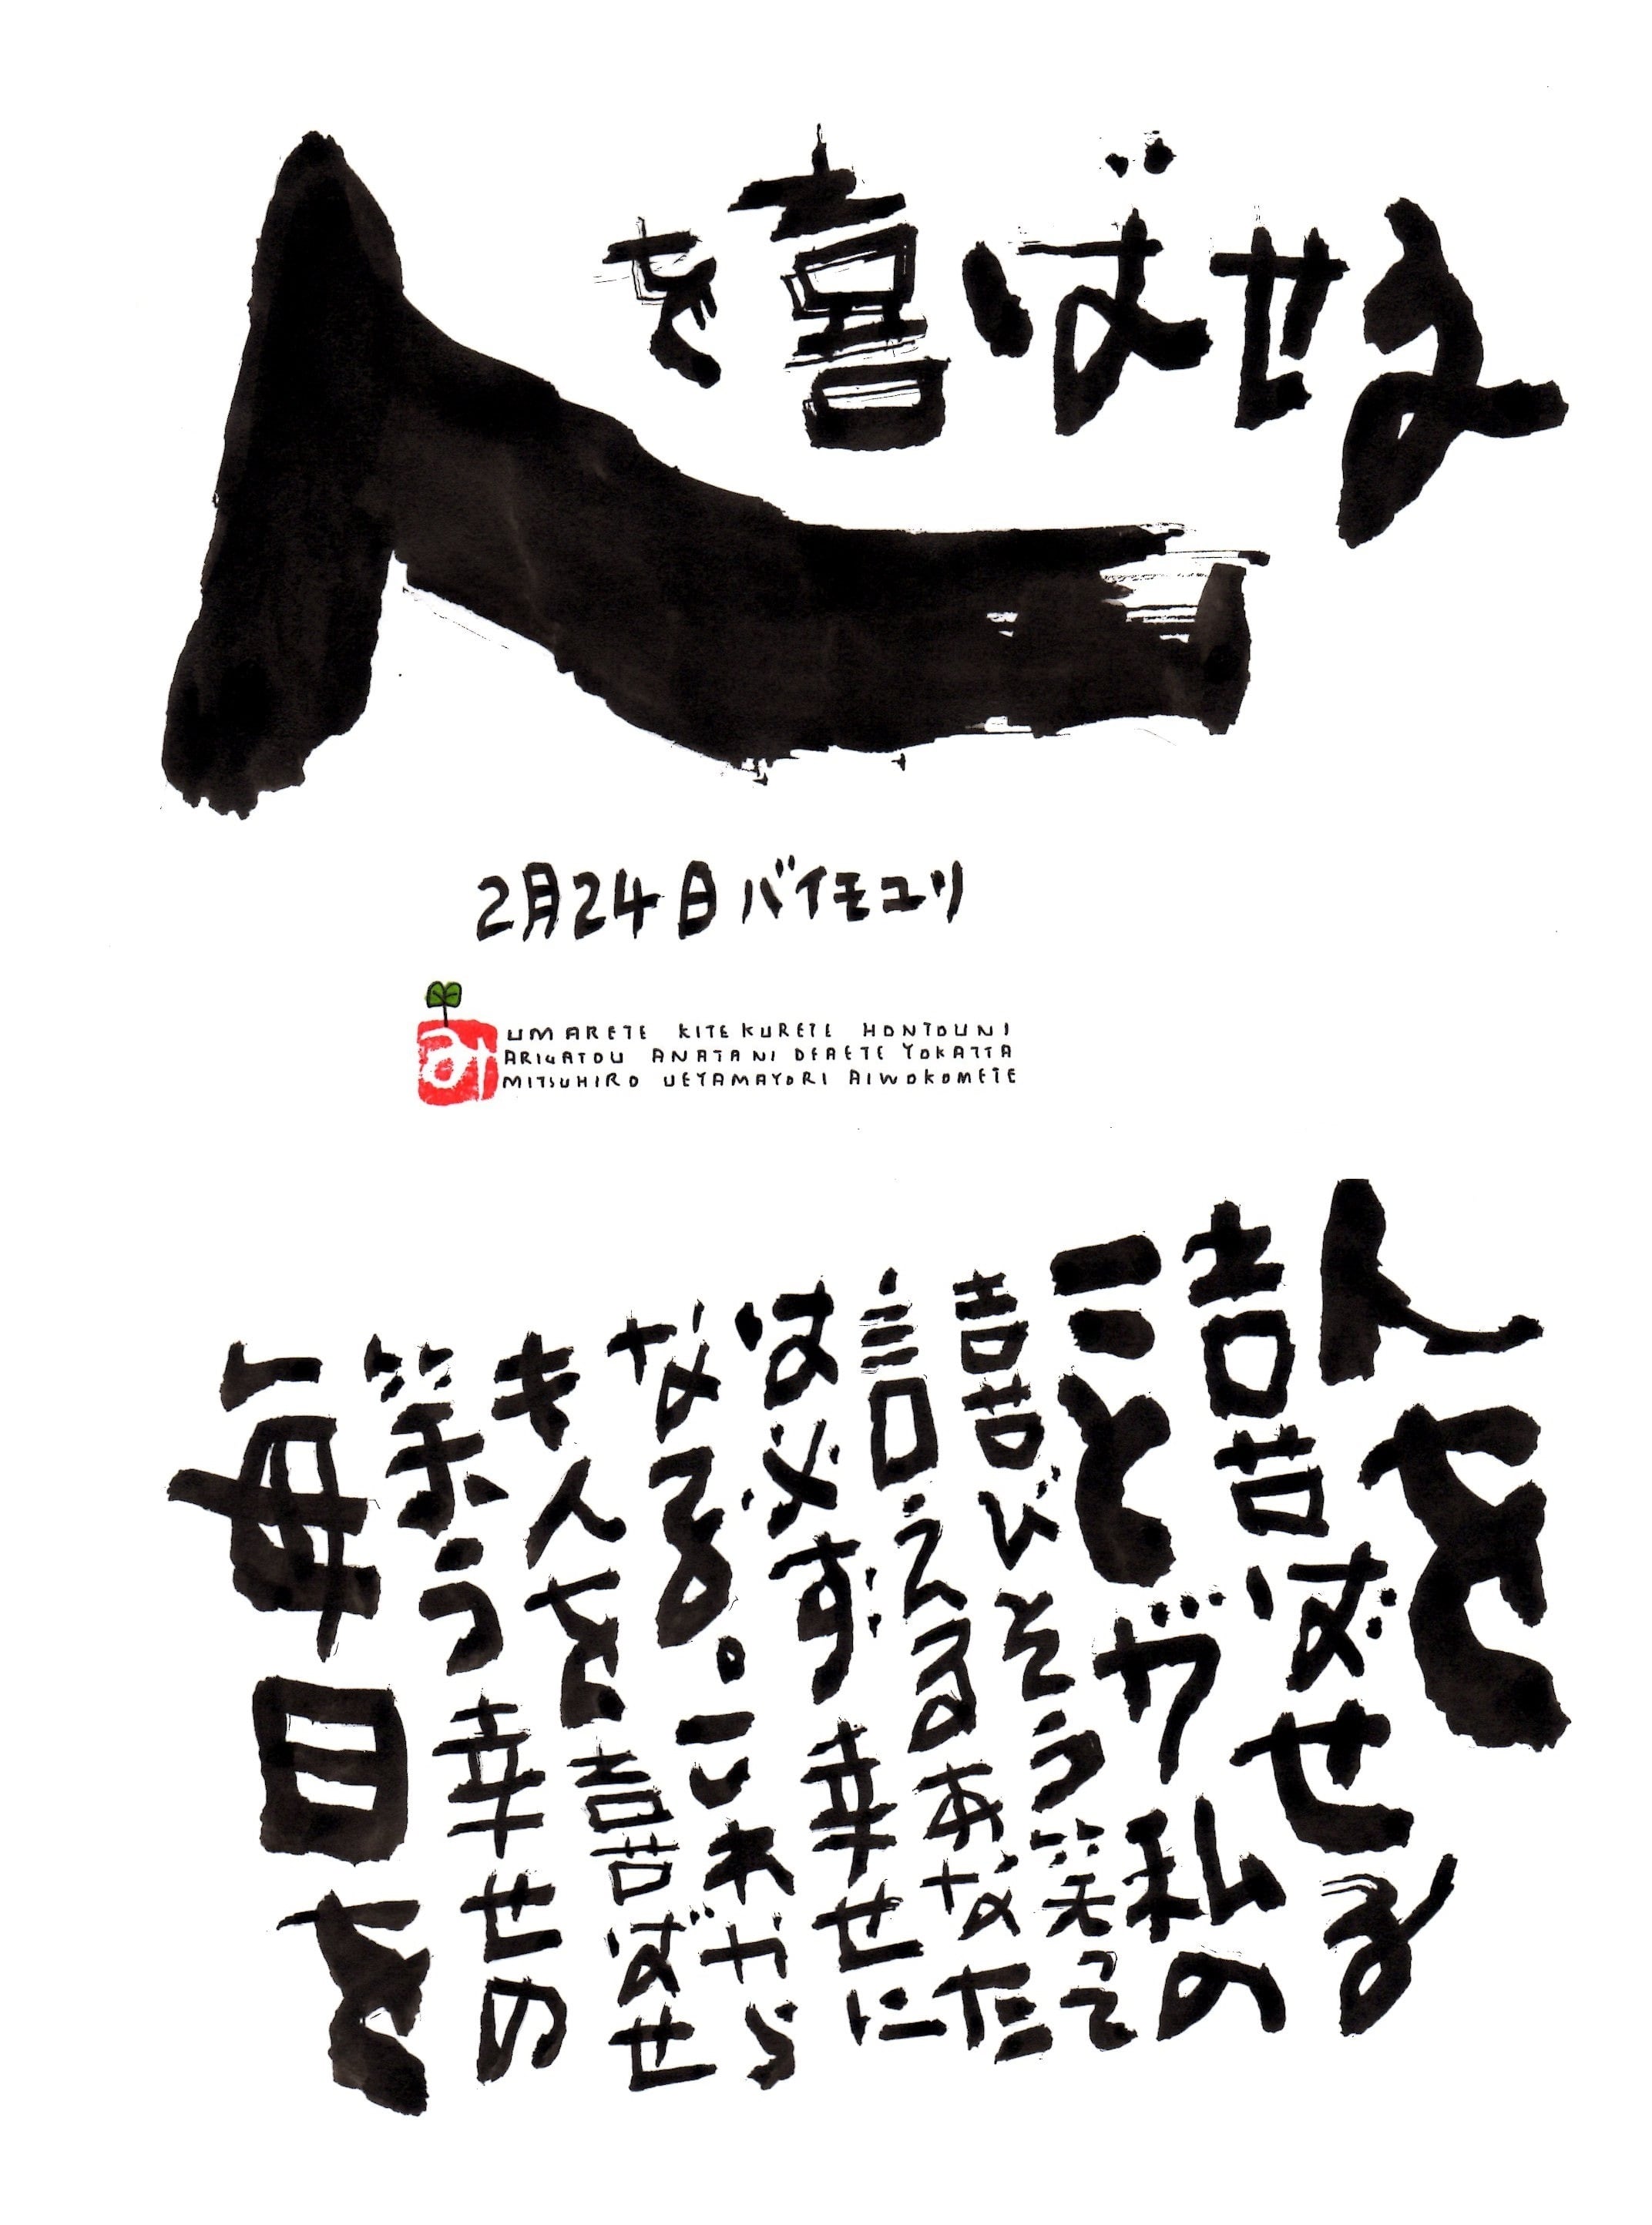 人を喜ばせる
2月24日 バイモユリ
み
UMARETE KITEKURETE HONTOUNI
ARIGATOU ANATANI DEAETE YOKATTA
MITSUHIRO UEYAMAYORI AIWOKOMETE
人を
喜ばせる
ことが私の
喜びそう笑って
言えるあなた
は必ず幸せに
なる。これから
も人を喜ばせ
笑う幸せの
毎日を